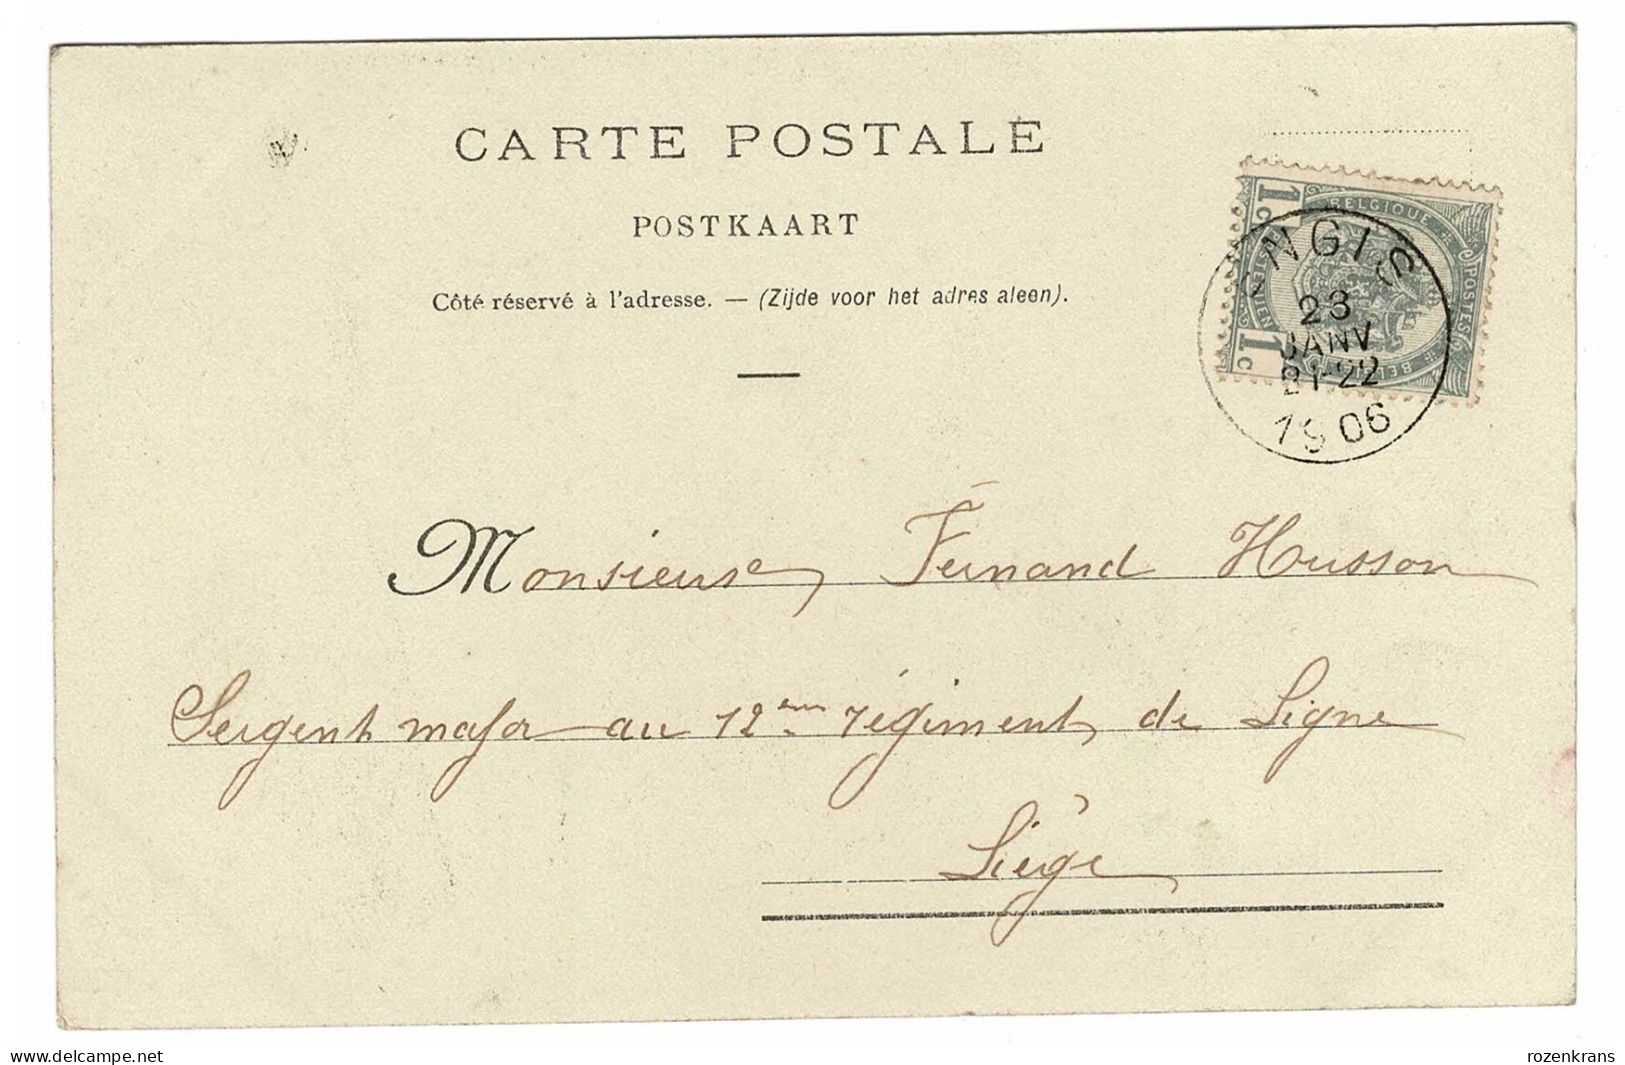 CARTE POSTALE
POSTKAART
Côté réservé à l'adresse. — (Zijde voor het adres aleen).
1c
BELGIQUE
POSTES
1c
NGIS
23
JANV
21-22
1906
Monsieur Fernand Husson
Sergent major au 12ème régiment de Ligne
Liège
www.delcampe.net
rozenkrans